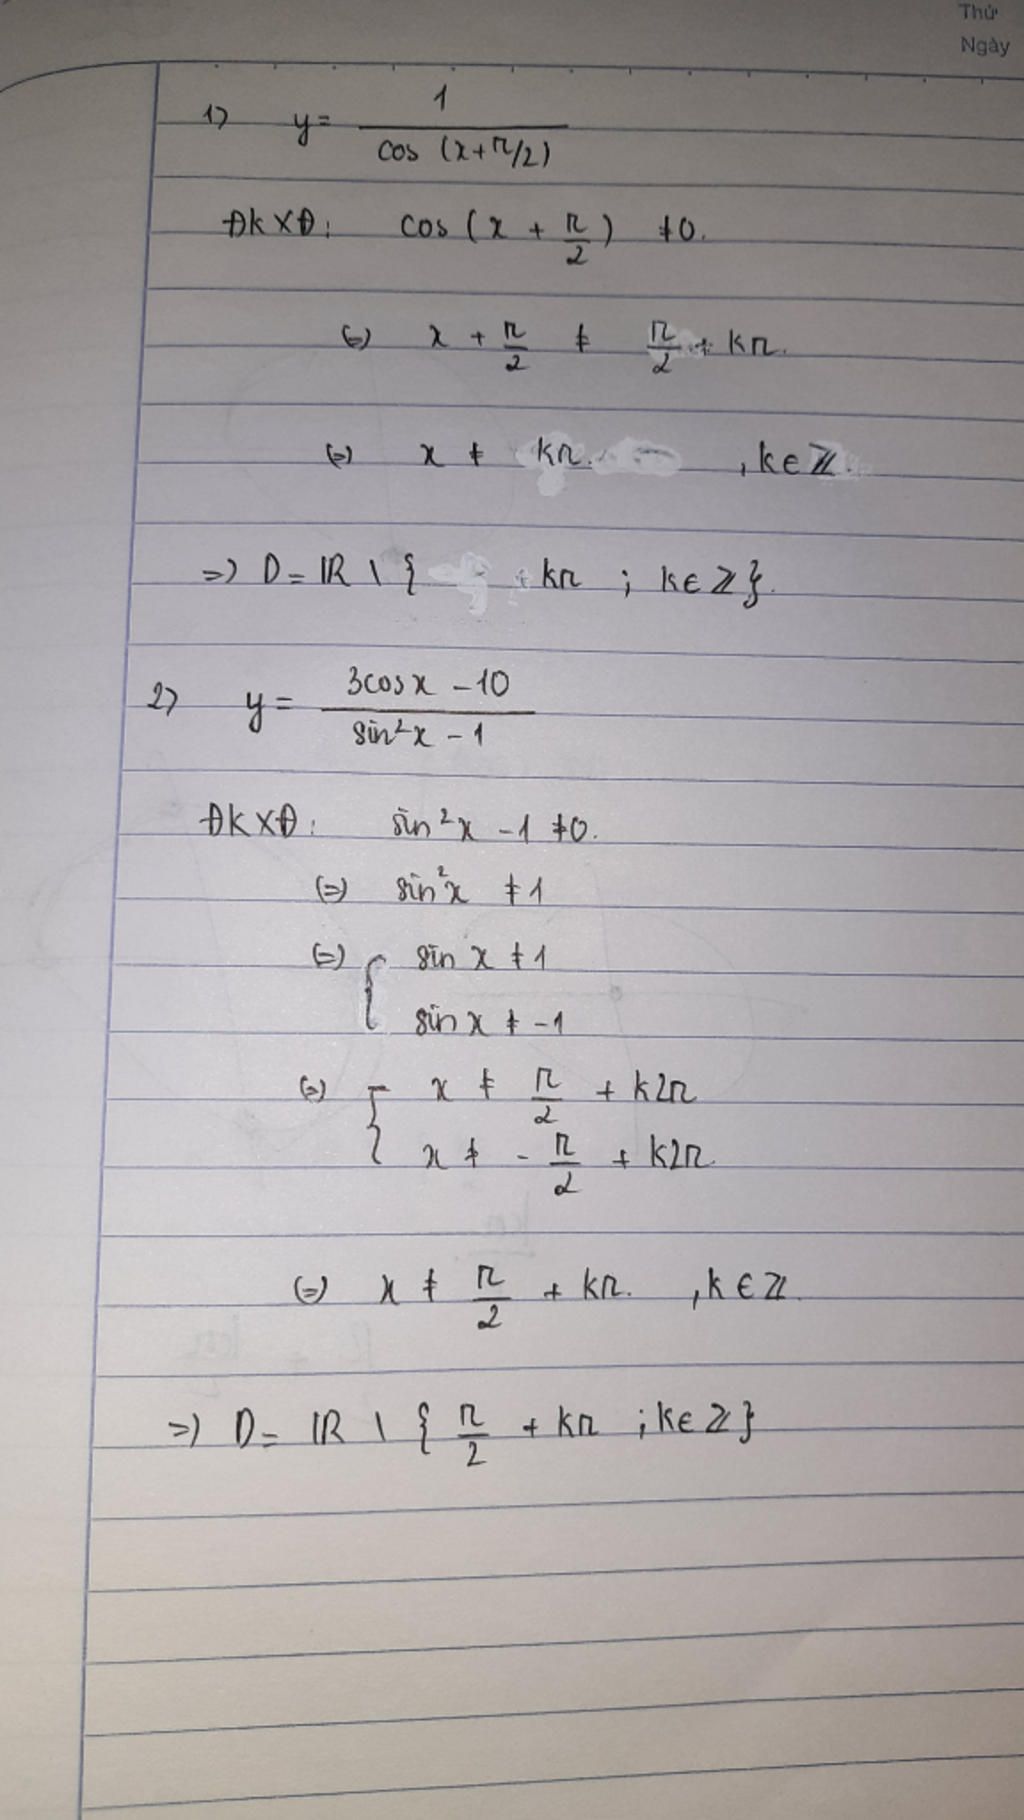 Thứ
Ngày
1) y = 1 / cos (x + π/2)
ĐKXĐ: cos (x + π/2) ≠ 0.
(=) x + π/2 ≠ π/2 + kπ.
(=) x ≠ kπ. , k ∈ ℤ.
=) D = ℝ \ { + kπ ; k ∈ ℤ }.
2) y = 3cosx - 10 / sin²x - 1
ĐKXĐ: sin²x - 1 ≠ 0.
(=) sin²x ≠ 1
(=) { sin x ≠ 1
sin x ≠ -1
(=) { x ≠ π/2 + k2π
x ≠ - π/2 + k2π
(=) x ≠ π/2 + kπ. , k ∈ ℤ.
=) D = ℝ \ { π/2 + kπ ; k ∈ ℤ }